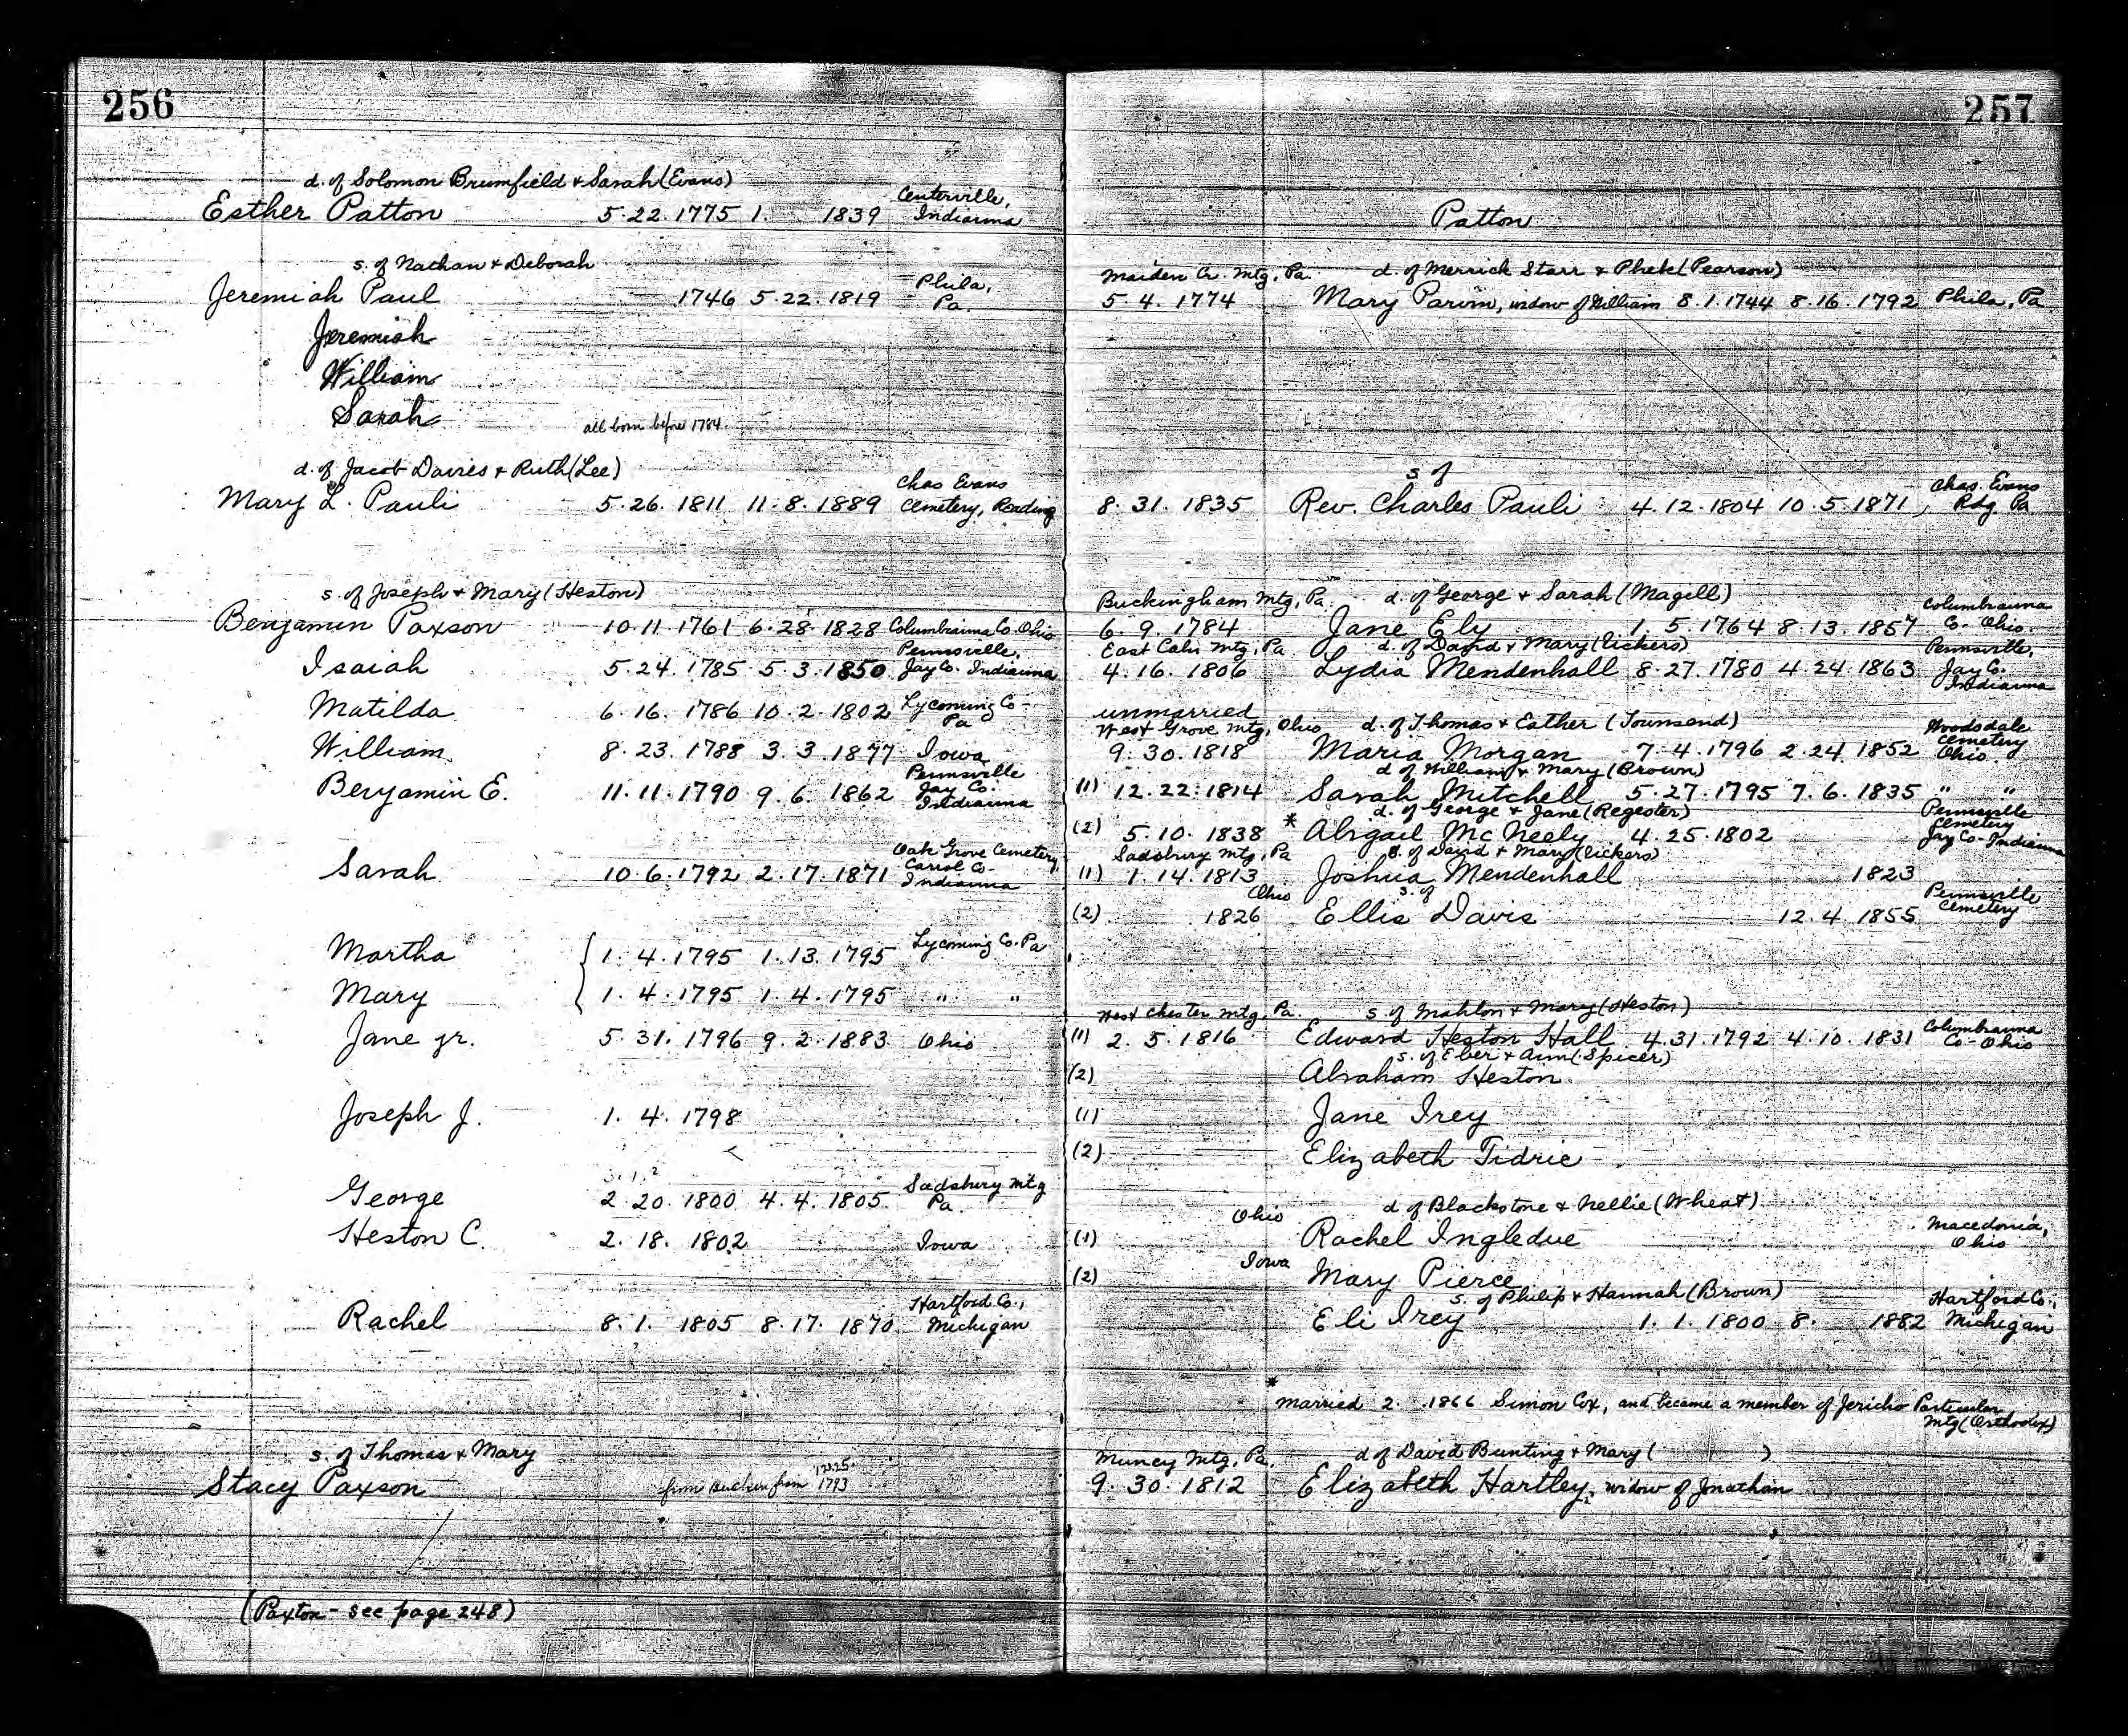 256
d. of Solomon Brumfield & Sarah (Evans)
Centerville,
Esther Patton 5.22.1775 1. 1839 Indianna
s. of Nathan & Deborah
Phila,
Jeremiah Paul 1746 5.22.1819 Pa.
Jeremiah
William
Sarah all born before 1784
d. of Jacob Davies & Ruth (Lee)
Chas Evans
Mary L. Pauli 5.26.1811 11.8.1889 Cemetery, Reading
s. of Joseph & Mary (Heston)
Benjamin Paxson 10.11.1761 6.28.1828 Columbianna Co. Ohio
Pennsville,
Isaiah 5.24.1785 5.3.1850 Jay Co. Indianna
Matilda 6.16.1786 10.2.1802 Lycoming Co-
Pa
William 8.23.1788 3.3.1877 Iowa
Pennsville
Benjamin E. 11.11.1790 9.6.1862 Jay Co.
Indianna
Oak Grove Cemetery,
Sarah 10.6.1792 2.17.1871 Carrol Co-
Indianna
Martha { 1.4.1795 1.13.1795 Lycoming Co. Pa
Mary 1.4.1795 1.4.1795 " "
Jane jr. 5.31.1796 9.2.1883 Ohio
Joseph J. 1.4.1798
Sadsbury Mtg
George 2.20.1800 4.4.1805 Pa.
Heston C. 2.18.1802 Iowa
Hartford Co.,
Rachel 8.1.1805 8.17.1870 Michigan
s. of Thomas & Mary
Stacy Paxson from 1793
(Paxton - see page 248)
257
Patton
Maiden Cr. Mtg, Pa. d. of Merrick Starr & Phebe (Pearson)
5.4.1774 Mary Parvin, widow of William 8.1.1744 8.16.1792 Phila, Pa
s of
Chas. Evans
8.31.1835 Rev. Charles Pauli 4.12.1804 10.5.1871, Rdg. Pa.
Buckingham Mtg, Pa. d. of George & Sarah (Magill)
Columbianna
6.9.1784 Jane Ely 1.5.1764 8.13.1857 Co- Ohio.
East Caln Mtg, Pa d. of David & Mary (Vickers) Pennsville,
4.16.1806 Lydia Mendenhall 8.27.1780 4.24.1863 Jay Co.
Indianna
unmarried
West Grove Mtg, Ohio d. of Thomas & Esther (Townsend) Woodsdale
Cemetery
9.30.1818 Maria Morgan 7.4.1796 2.24.1852 Ohio.
d. of William & Mary (Brown)
(1) 12.22.1814 Sarah Mitchell 5.27.1795 7.6.1835 " "
d. of George & Jane (Regester) Pennsville
Cemetery
(2) 5.10.1838 * Abigail McNeely 4.25.1802 Jay Co- Indianna
Sadsbury Mtg, Pa s. of David & Mary (Vickers)
(1) 1.14.1813 Joshua Mendenhall 1823
Ohio s. of Pennsville
Cemetery
(2) 1826 Ellis Davis 12.4.1855
West Chester Mtg, Pa. s. of Mahlon & Mary (Heston)
Columbianna
(1) 2.5.1816 Edward Heston Hall 4.31.1792 4.10.1831 Co-Ohio
s. of Eber & Ann (Spicer)
(2) Abraham Heston
(1) Jane Irey
(2) Elizabeth Tidrie
Ohio d of Blackstone & Nellie (Wheat)
Macedonia,
(1) Rachel Ingledue Ohio
(2) Iowa Mary Pierce
s. of Philip & Hannah (Brown) Hartford Co.,
Eli Irey 1.1.1800 8. 1882 Michigan
*
married 2. 1866 Simon Cox, and became a member of Jericho Particular
Mtg (Orthodox)
Muncy Mtg, Pa. d of David Bunting & Mary ( )
9.30.1812 Elizabeth Hartley, widow of Jonathan